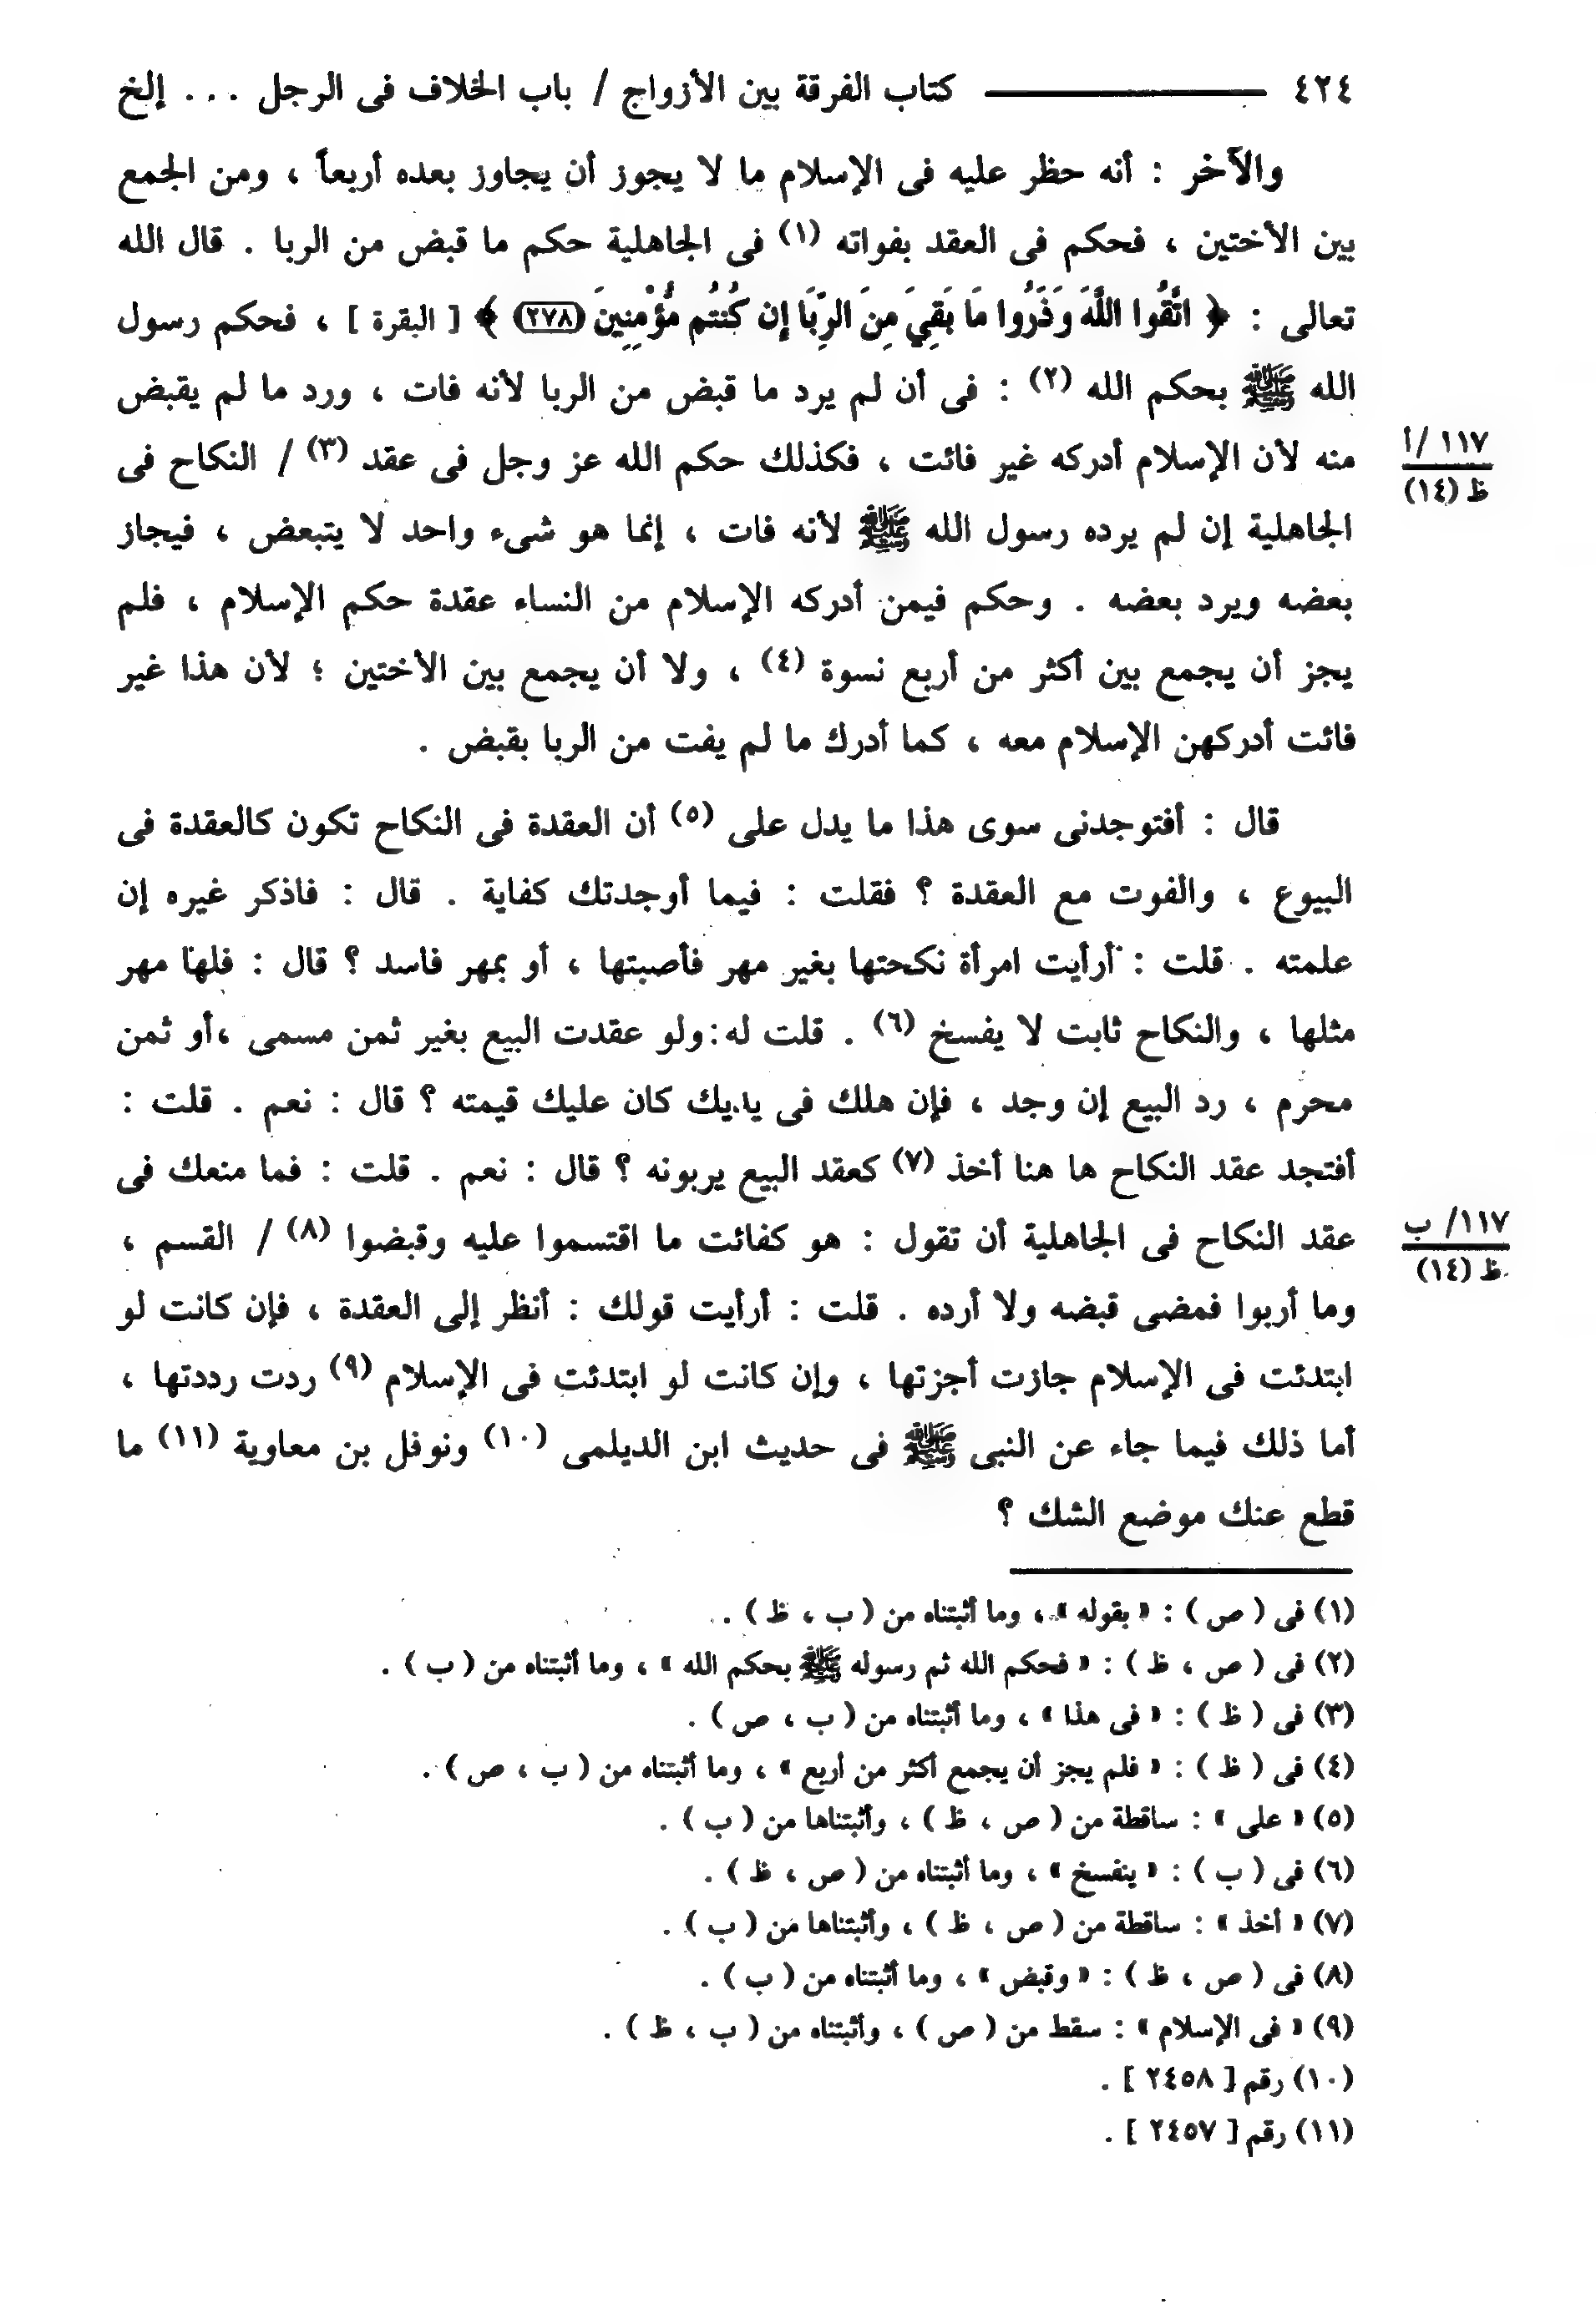 ٤٢٤ كتاب الفرقة بين الأزواج / باب الخلاف فى الرجل . . . إلخ
والآخر : أنه حظر عليه فى الإسلام ما لا يجوز أن يجاوز بعده أربعاً ، ومن الجمع
بين الأختين ، فحكم فى العقد بفواته (١) فى الجاهلية حكم ما قبض من الربا . قال الله
تعالى : ﴿ اتَّقُوا اللَّهَ وَذَرُوا مَا بَقِيَ مِنَ الرِّبَا إِن كُنتُم مُّؤْمِنِينَ (٢٧٨) ﴾ [ البقرة ] ، فحكم رسول
الله ﷺ بحكم الله (٢) : فى أن لم يرد ما قبض من الربا لأنه فات ، ورد ما لم يقبض
منه لأن الإسلام أدركه غير فائت ، فكذلك حكم الله عز وجل فى عقد (٣) / النكاح فى
١١٧ /أ
ظ (١٤)
الجاهلية إن لم يرده رسول الله ﷺ لأنه فات ، إنما هو شىء واحد لا يتبعض ، فيجاز
بعضه ويرد بعضه . وحكم فيمن أدركه الإسلام من النساء عقدة حكم الإسلام ، فلم
يجز أن يجمع بين أكثر من أربع نسوة (٤) ، ولا أن يجمع بين الأختين ؛ لأن هذا غير
فائت أدركهن الإسلام معه ، كما أدرك ما لم يفت من الربا بقبض .
قال : أفتوجدنى سوى هذا ما يدل على (٥) أن العقدة فى النكاح تكون كالعقدة فى
البيوع ، والفوت مع العقدة ؟ فقلت : فيما أوجدتك كفاية . قال : فاذكر غيره إن
علمته . قلت : أرأيت امرأة نكحتها بغير مهر فأصبتها ، أو بمهر فاسد ؟ قال : فلها مهر
مثلها ، والنكاح ثابت لا يفسخ (٦) . قلت له : ولو عقدت البيع بغير ثمن مسمى ،أو ثمن
محرم ، رد البيع إن وجد ، فإن هلك فى يديك كان عليك قيمته ؟ قال : نعم . قلت :
أفتجد عقد النكاح ها هنا أخذ (٧) كعقد البيع يربونه ؟ قال : نعم . قلت : فما منعك فى
عقد النكاح فى الجاهلية أن تقول : هو كفائت ما اقتسموا عليه وقبضوا (٨) / القسم ،
١١٧/ ب
ظ (١٤)
وما أربوا فمضى قبضه ولا أرده . قلت : أرأيت قولك : أنظر إلى العقدة ، فإن كانت لو
ابتدئت فى الإسلام جازت أجزتها ، وإن كانت لو ابتدئت فى الإسلام (٩) ردت رددتها ،
أما ذلك فيما جاء عن النبى ﷺ فى حديث ابن الديلمى (١٠) ونوفل بن معاوية (١١) ما
قطع عنك موضع الشك ؟
(١) فى ( ص ) : « بقوله » ، وما أثبتناه من ( ب ، ظ ) .
(٢) فى ( ص ، ظ ) : « فحكم الله ثم رسوله ﷺ بحكم الله » ، وما أثبتناه من ( ب ) .
(٣) فى ( ظ ) : « فى هذا » ، وما أثبتناه من ( ب ، ص ) .
(٤) فى ( ظ ) : « فلم يجز أن يجمع أكثر من أربع » ، وما أثبتناه من ( ب ، ص ) .
(٥) « على » : ساقطة من ( ص ، ظ ) ، وأثبتناها من ( ب ) .
(٦) فى ( ب ) : « ينفسخ » ، وما أثبتناه من ( ص ، ظ ) .
(٧) « أخذ » : ساقطة من ( ص ، ظ ) ، وأثبتناها من ( ب ) .
(٨) فى ( ص ، ظ ) : « وقبض » ، وما أثبتناه من ( ب ) .
(٩) « فى الإسلام » : سقط من ( ص ) ، وأثبتناه من ( ب ، ظ ) .
(١٠) رقم [ ٢٤٥٨ ] .
(١١) رقم [ ٢٤٥٧ ] .